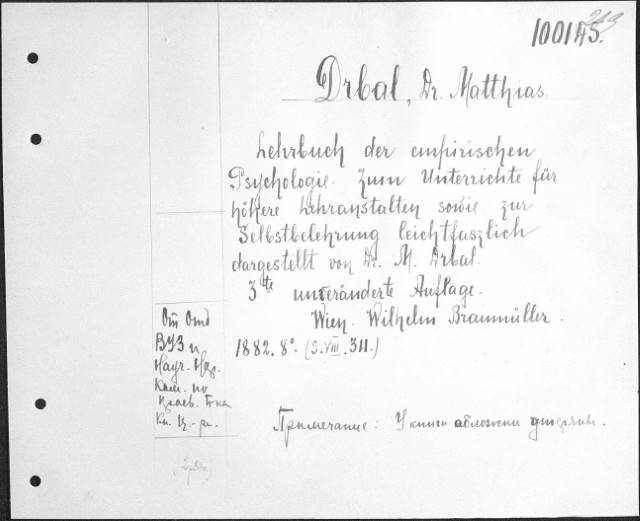 100145.
Drbal, Dr. Matthias.
Lehrbuch der empirischen
Psychologie. Zum Unterrichte für
höhere Lehranstalten sowie zur
Selbstbelehrung leichtfaszlich
dargestellt von Dr. M. Drbal.
3te unveränderte Auflage.
Wien. Wilhelm Braumüller.
1882. 8°. (S. VIII. 311.)
От Отд
ВУЗ и
Науч.
по
Кн. Ц.-р.
Примечание: У книги обложки утеряны.